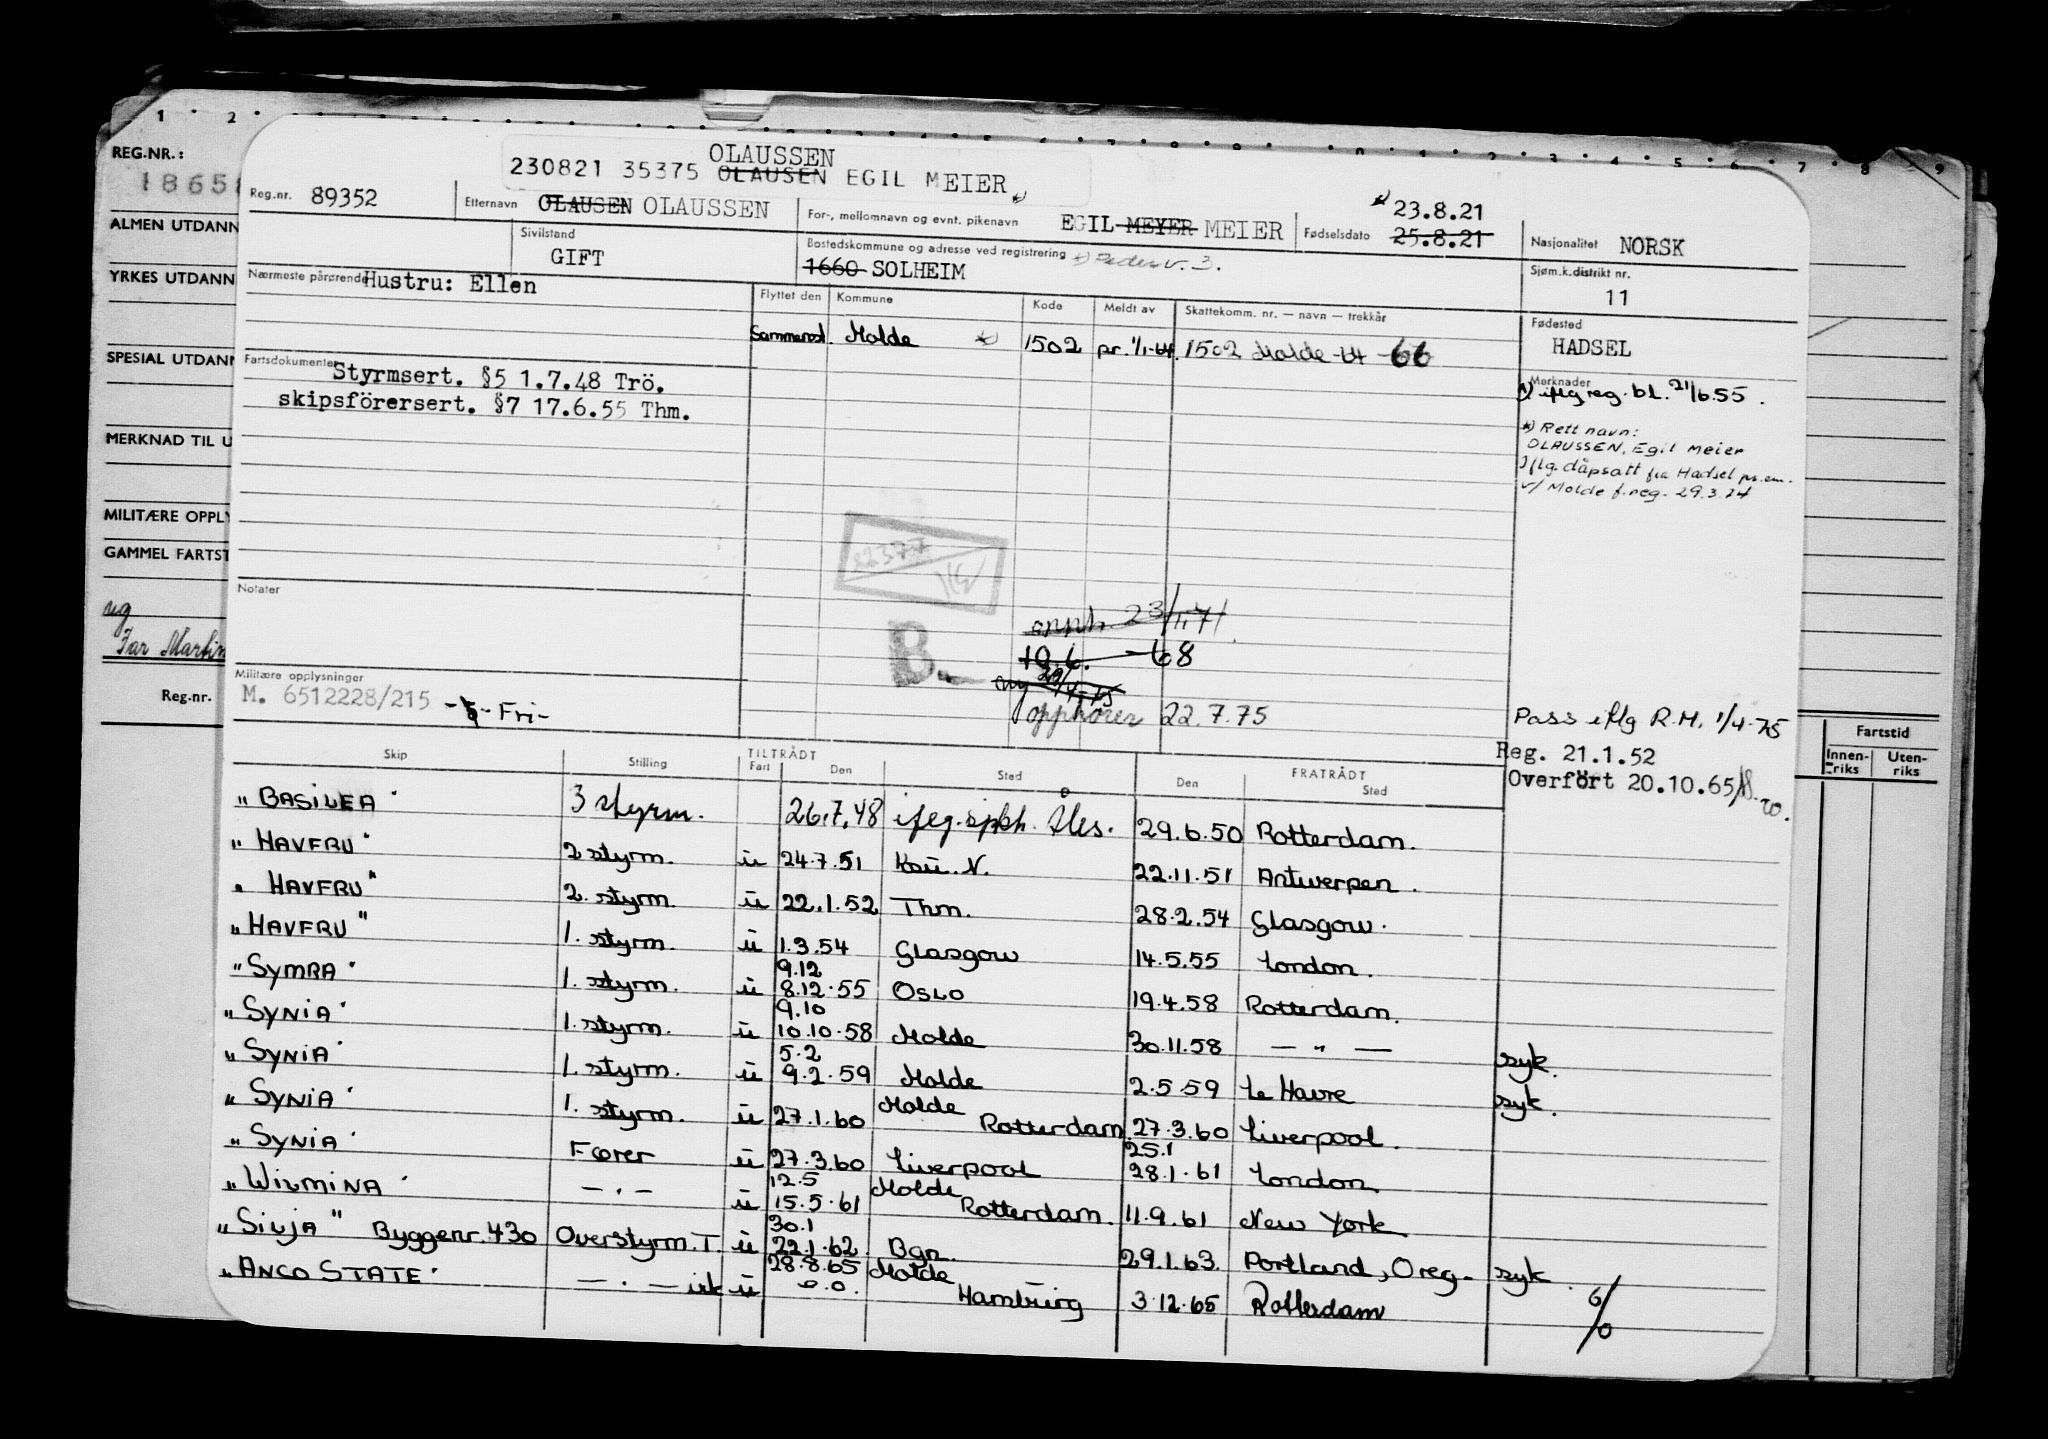 1 2 3 4 5 6 7 8 9 0 1 2 3 4 5 6 7 8 9
REG.NR.:
1865
ALMEN UTDANN
YRKES UTDANN
SPESIAL UTDANN
MERKNAD TIL U
MILITÆRE OPPLY
GAMMEL FARTST
Far Martin
Reg.nr.
Fartstid
Innen-riks Uten-riks
OLAUSSEN
230821 35375 OLAUSEN EGIL MEIER
Reg.nr. 89352 Etternavn OLAUSEN OLAUSSEN *) For-, mellomnavn og evnt. pikenavn EGIL MEYER MEIER Fødselsdato *) 23.8.21 25.8.21 Nasjonalitet NORSK
Sivilstand GIFT Bostedskommune og adresse ved registrering 1660 SOLHEIM Sjøm.k.distrikt nr. 11
Nærmeste pårørende Hustru: Ellen
Flyttet den Kommune Kode Meldt av Skattekomm. nr. — navn — trekkår
Molde *) 1502 pr. 1/1-64. 1502 Molde -64 -66
Fødested HADSEL
Fartsdokumenter Styrmsert. §5 1.7.48 Trö.
skipsförersert. §7 17.6.55 Thm.
Merknader
iflg reg. bl. 21/6.55.
*) Rett navn:
OLAUSSEN, Egil Meier
Iflg. dåpsatt fra Hadsel pr.em.
v/ Molde f.reg. 29.3.74
Notater
B.
opph. 23/11.71.
19.6. -68
ny 29/4-75
opphører 22.7.75
Militære opplysninger
M. 6512228/215 - Fri-
Pass iflg R.M. 1/4-75
Reg. 21.1.52
Overfört 20.10.65
Skip Stilling TILTRÅDT Fart Den Sted FRATRÅDT Den Sted
"BASILEA" 3 styrm. 26.7.48 ifeg. sjkh. Åles. 29.6.50 Rotterdam.
"HAVFRU" 2 styrm. u 24.7.51 Kou. N. 22.11.51 Antwerpen.
"HAVFRU" 2. styrm. u 22.1.52 Thm. 28.2.54 Glasgow.
"HAVFRU" 1. styrm. u 1.3.54 Glasgow 14.5.55 London.
"SYMRA" 1. styrm. u 9.12 8.12.55 OSLO 19.4.58 Rotterdam.
"SYNIA" 1. styrm. u 9.10 10.10.58 Molde 30.11.58 — " — syk.
"SYNIA" 1. styrm. u 5.2 9.2.59 Molde 2.5.59 Le Havre syk.
"SYNIA" 1. styrm. u 27.1.60 Molde Rotterdam 27.3.60 Liverpool.
"SYNIA" Fører u 27.3.60 Liverpool 25.1 28.1.61 London.
"WILMINA" — " — u 12.5 15.5.61 Molde Rotterdam. 11.9.61 New York
"SILJA" Byggenr. 430 Overstyrm. T. u 30.1 22.1.62 Bgn. 29.1.63. Portland, Oreg. syk.
"ANCO STATE" — " — u 28.8.65 Molde Hamburg 3.12.65 Rotterdam 6/0